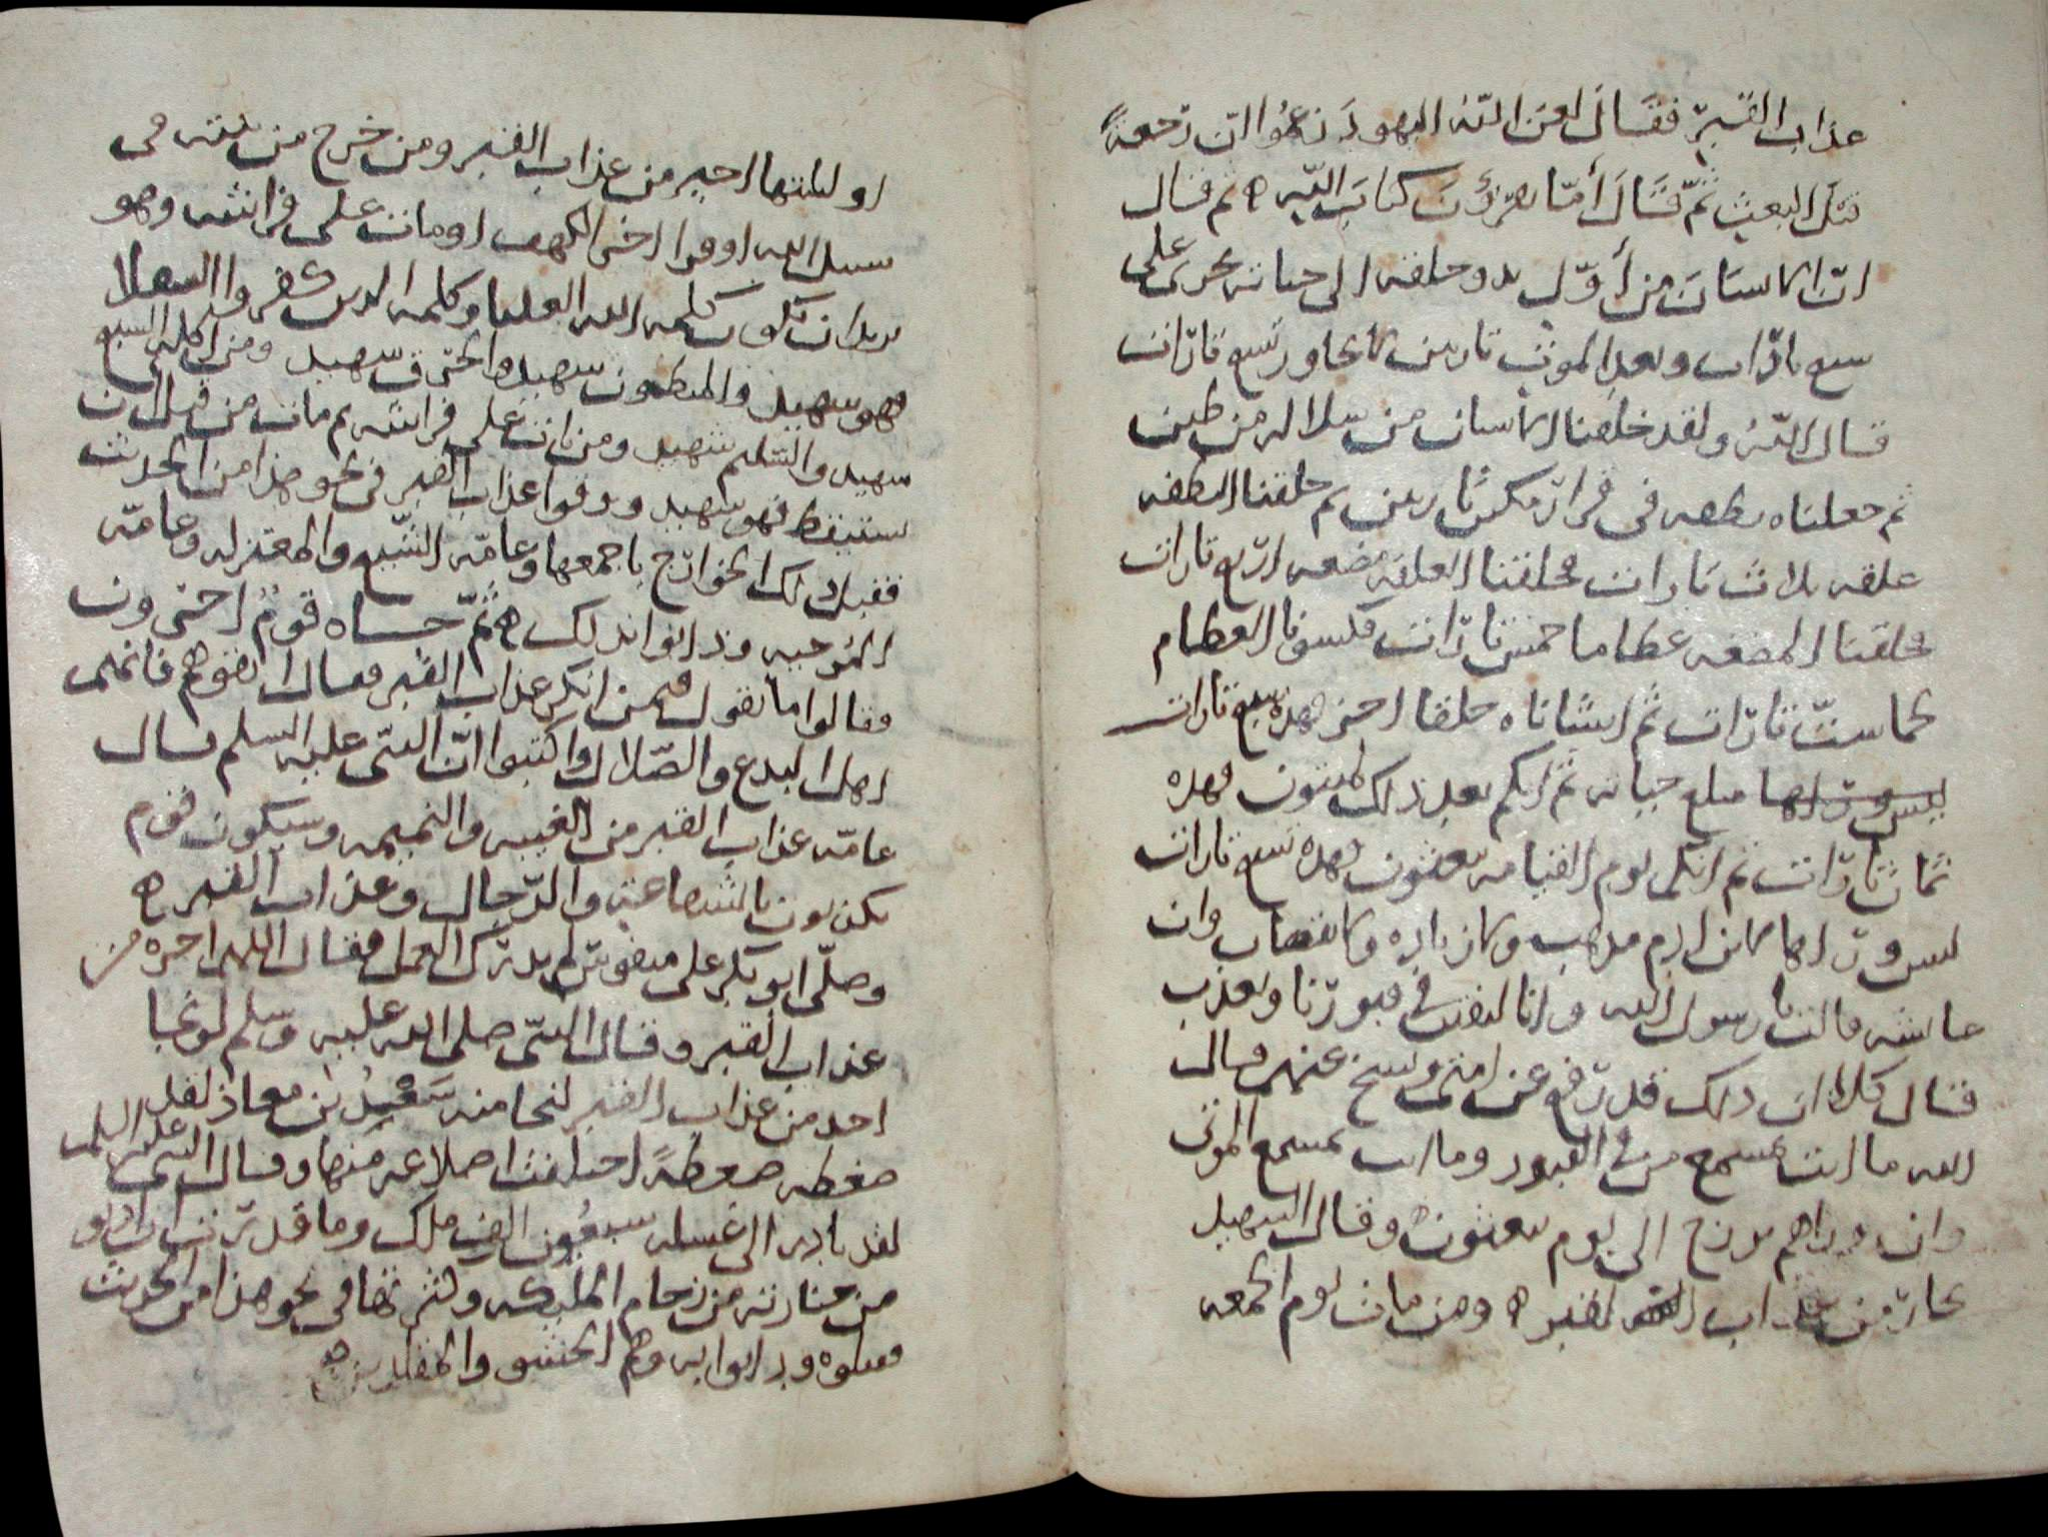 عذاب القبر فقال لعن الله اليهود زعموا ان رجعة
قبل البعث ثم قال أما يقرؤن كتاب الله ه ثم قال
ان الانسان من أول بدو خلقه الى حياته يجري على
سبع تارات وبعد الموت تارتين لا يجاوز تسع تارات
قال الله ولقد خلقنا الانسان من سلاله من طين
ثم جعلناه نطفه في قرار مكين تارتين ثم خلقنا النطفه
علقه ثلاث تارات فخلقنا العلقه مضغه اربع تارات
فخلقنا المضغه عظاما خمس تارات فكسونا العظام
لحما ست تارات ثم انشاناه خلقا اخر فهذه سبع تارات
مبلغ حياته ثم انكم بعد ذلك لميتون فهذه
ثمان تارات ثم انكم يوم القيامه تبعثون فهذه تسع تارات
ليس وراها لابن ادم مذهب ولا زياده ولا نقصان وان
عايشه قالت يا رسول الله وانا لنفتن في قبورنا ونعذب
فقال كلا ان ذلك قد رفع عن امتي ونسخ عنهم قال
الله ما انت بمسمع من في القبور وما انت بمسمع الموتى
وان وراهم برزخ الى يوم يبعثون ه وقال الشهيد
يجار من عذاب القبر ه ومن مات يوم الجمعه
او ليلتها اجير من عذاب القبر ومن خرج من بيته في
سبيل الله او قرا اخر الكهف او مات على فراشه وهو
يريد ان تكون كلمه الله العليا وكلمه الذين كفروا السفلا
فهو شهيد والمبطون شهيد والحرق شهيد ومن اكله السبع
شهيد والسليم شهيد ومن بات على فراشه ثم مات من قبل ان
يستيقظ فهو شهيد ووقوا عذاب القبر في نحو هذا من الحديث
فقبل ذلك الخوارج باجمعها وعامه الشيع والمعتزله وعامه
المرجيه ودانوا بذلك ه ثم جاه قوم اخرون
فقالوا ما تقول فيمن انكر عذاب القبر فقال اتقوهم فانهم
اهل البدع والضلال واكتبوا ان النبي عليه السلم قال
عامه عذاب القبر من الغيبه والنميمه وسيكون قوم
يكذبون بالشفاعه والدجال وعذاب القبر ه
وصلى ابو بكر على منفوس لم يدرك العمل فقال اللهم اجره من
عذاب القبر وقال النبي صلى الله عليه وسلم لو نجا
احد من عذاب القبر لنجا منه سعد بن معاذ لقد
ضغطه ضغطة اختلفت اضلاعه منها وقال النبي عليه السلم
لقد بادر الى غسله سبعون الف ملك وما قدرت ان ادنو
من جنازته من زحام المليكه ولكثرتها في نحو هذا من الحديث
فقبلوه ودانوا به وهم الحشو والمقلدين ه